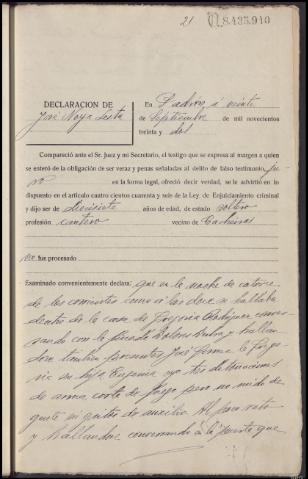 21
8.435.910
DECLARACION DE
José Noya Lesta
En Padrón á veinte
de Septiembre de mil novecientos
treinta y dos
Compareció ante el Sr. Juez y mi Secretario, el testigo que se expresa al margen a quien
se enteró de la obligación de ser veraz y penas señaladas al delito de falso testimonio, ju-
ró en la forma legal, ofreció decir verdad, se le advirtió en lo
dispuesto en el artículo cuatro cientos cuarenta y seis de la Ley de Enjuiciamiento criminal
y dijo ser de años de edad, de estado soltero
profesión cantero vecino de
no fue procesado
Examinado convenientemente declara: que en la noche de catorce
de los corrientes como a las doce se hallaba
dentro de la casa de
sando con la y hallan
dose tambien presentes José la
su hija Eugenia oyo
de arma corta de fuego pero no
ni gritos de auxilio. Al poco rato
y hallandose conversando á la puerta que